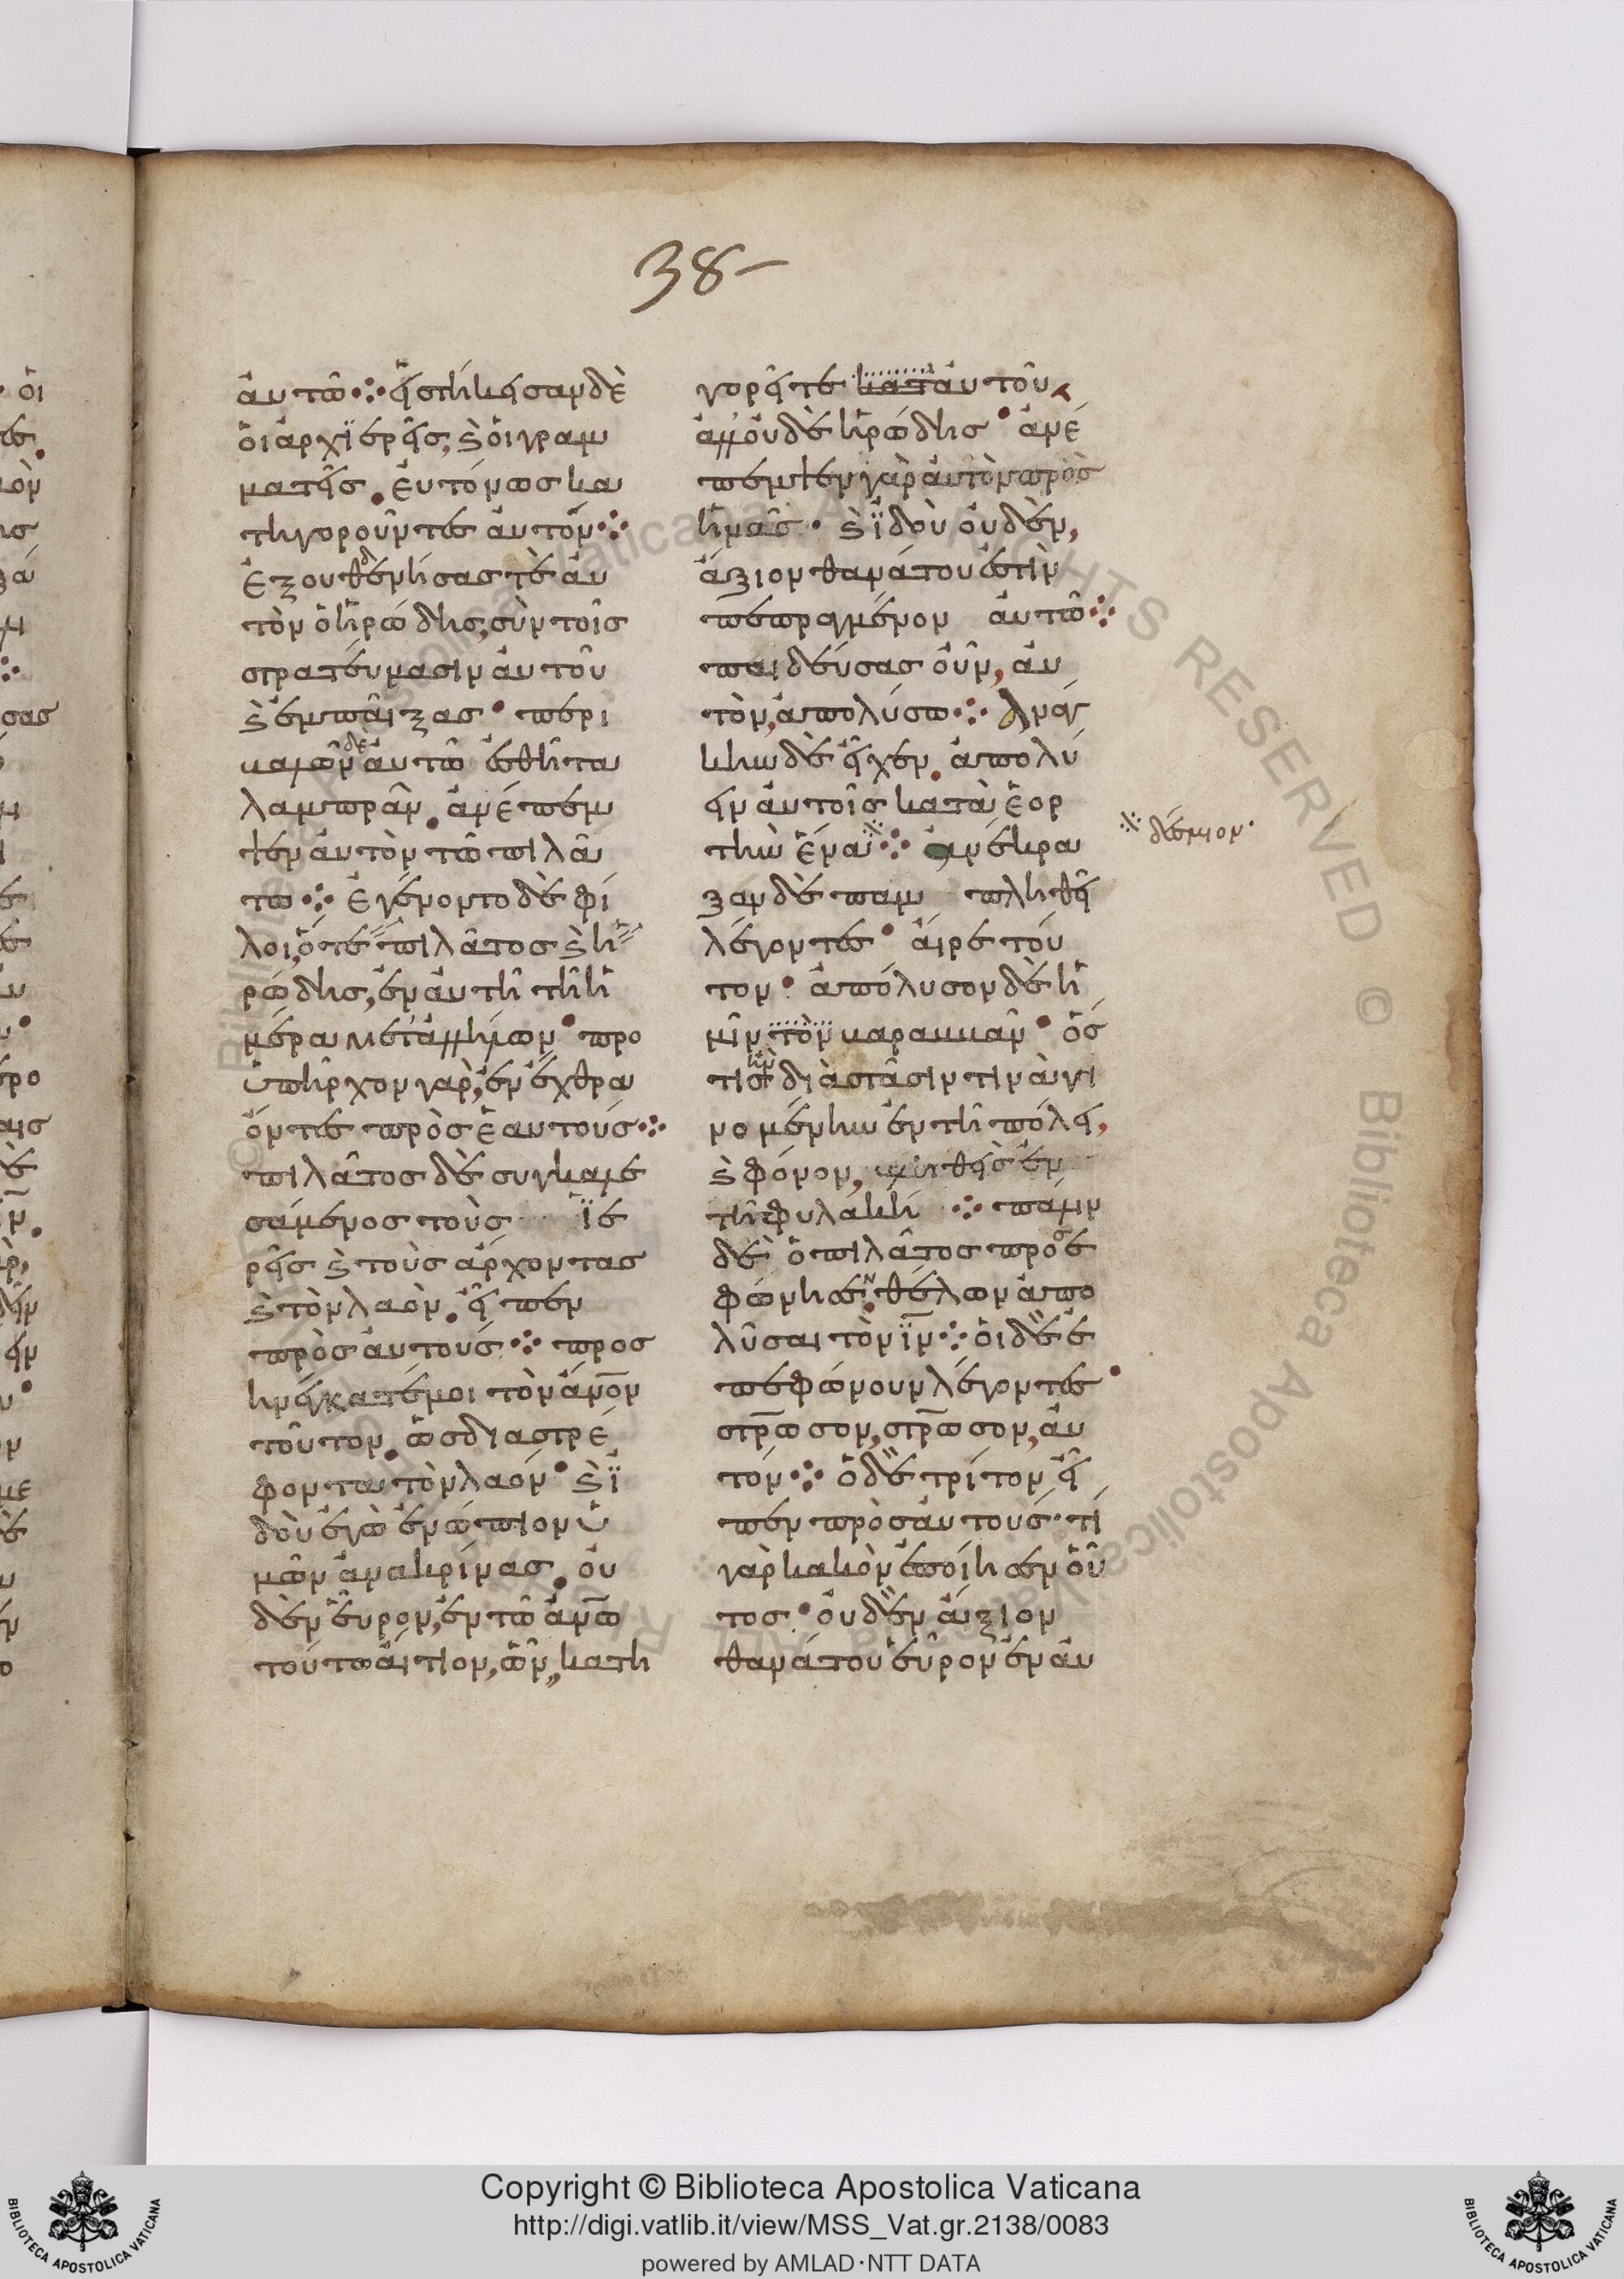 38-
ἀυτῶ ⁘ εἰστήκεισαν δὲ
ὁι ἀρχϊερεῖς, ϗ ὁι γραμ
ματεῖς. ἐυτόνωσ κα
τηγοροῦντες ἀυτόν ⁘
ἐξουθενήσας δὲ ἀυ
τὸν ὁ ἡρώδης, σὺν τοῖς
στρατεύμασιν ἀυτοῦ
ϗ ἐμπάιξας· περι
βαλὼν δὲ ἀυτῶ ἐσθῆτα
λαμπρὰν. ἀνέπεμ
ψεν ἀυτὸν τῶ πιλά
τω ⁘ ἐγένοντο δὲ φί
λοι, ὅτε πιλᾶτοσ ϗ ἡ
ρώδης, ἐν ἀυτῆ τῆ ἡ
μέρα μετ' ἀλλήλων· προ
ὑπῆρχον γαρ, ἐν ἔχθρα
ὄντες πρὸς ἑαυτούς ⁘
πιλᾶτος δὲ συγκαλε
σάμενος τοὺς ἱε
ρεῖς ϗ τοὺς ἄρχοντας
ϗ τὸν λαὸν. εἶπεν
πρὸς ἀυτούς ⁘ προσ
ηνέγκατέ μοι τὸν ἄνον
τοῦτον. ὡσ διαστρέ
φοντα τὸν λαόν· ϗ ἰ
δοὺ ἐγὼ ἐνώπιον ὑ
μῶν ἀνακρίνας. ὀυ
δὲν ἑυρον, ἐν τῶ ἀνω
τούτω ἄιτιον, ὧν, κατη
γορεῖτε κατ' ἀυτοῦ
ἀλλ' ὀυδὲ ἡρώδης· ἀνέ
πεμψεν γὰρ ἀυτὸν πρὸς
ἡμᾶς· ϗ ϊδοὺ ὀυδὲν,
ἄξιον θανάτου ἐστὶν
πεπραγμένον ἀυτῶ ⁘
παιδεύσας ὀῦν, ἀυ
τὸν, ἀπολύσω ⁘ ἀνάγ
κην δὲ εἶχεν. ἀπολύ
ειν ἀυτοῖς κατὰ ἑορ
τὴν ἕνα ⁘ ἀνέκρα
ξαν δὲ παμ πληθεῖ
λέγοντες· ἆιρε τοῦ
τον· ἀπόλυσον δὲ ἡ
μῖν τὸν βαραββᾶν· ὅσ
τις ἦν διὰ στάσιν τινὰ γι
νομένην ἐν τῆ πόλει,
ϗ φόνον, βληθεὶς ἐν
τῆ φυλακῆ ⁘ πάλιν
δὲ ὁ πιλᾶτος προσε
φώνησεν. θέλων ἀπο
λῦσαι τὸν ϊν ⁘ ὁι δὲ ἐ
πεφώνουν λέγοντες·
στρωσον, στρωσον, ἀυ
τόν ⁘ ὁ δὲ τρίτον εἶ
πεν πρὸς ἀυτούς· τί
γὰρ κακὸν ἐποίησεν ὁῦ
τος· ὀυδὲν ἄιξιον
θανάτου ἑῦρον ἐν ἀυ
δέσμιον·
Copyright © Biblioteca Apostolica Vaticana
http://digi.vatlib.it/view/MSS_Vat.gr.2138/0083
powered by AMLAD·NTT DATA